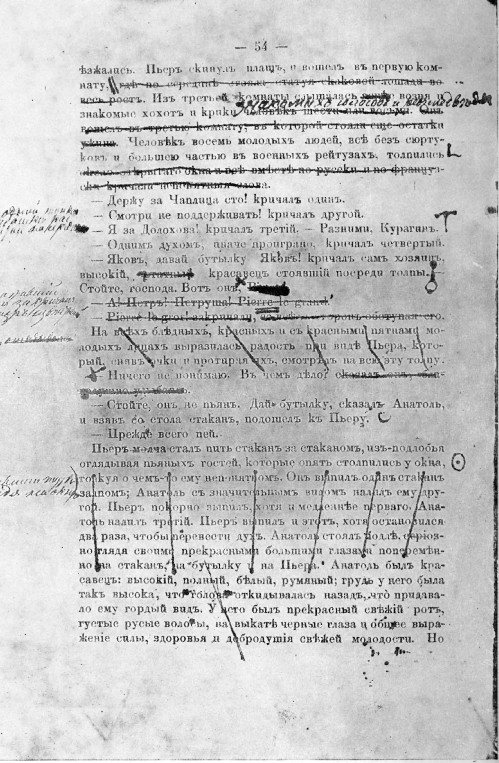 — 54 —
ѣзжались. Пьеръ скинулъ плащъ, и вошелъ въ первую ком-
нату, гдѣ по срединѣ стояла статуя скаковой лошади во
весь ростъ. Изъ третьей комнаты слышалась возня и
знакомые хохотъ и крики человѣкъ шести или восьми. Онъ
вошелъ въ третью комнату, въ которой стояли еще остатки
ужина. Человѣкъ восемь молодыхъ людей, всѣ безъ сюрту-
ковъ и большею частью въ военныхъ рейтузахъ, толпились
около открытаго окна и всѣ вмѣстѣ по русски и по француз-
ски кричали
— Держу за Чаплица сто! кричалъ одинъ.
— Смотри не поддерживать! кричалъ другой.
— Я за Долохова! кричалъ третій. — Разними, Курагинъ.
— Однимъ духомъ, иначе проиграно, кричалъ четвертый.
— Яковъ, давай бутылку Яковъ! кричалъ самъ хозяинъ,
высокій, красавецъ стоявшій посреди толпы. —
Стойте, господа. Вотъ онъ,
— А! Петръ! Петруша! Pierre le grand!
— Pierre le gros! закричали, обступая его.
На всѣхъ блѣдныхъ, красныхъ и съ красными пятнами мо-
лодыхъ лицахъ выразилась радость при видѣ Пьера, кото-
рый, снявъ очки и протирая ихъ, смотрѣлъ на всю эту толпу.
— Ничего не понимаю. Въ чемъ дѣло? сказалъ онъ

— Стойте, онъ не пьянъ. Дай бутылку, сказалъ Анатоль,
и взявъ со стола стаканъ, подошелъ къ Пьеру.
— Прежде всего пей.
Пьеръ молча сталъ пить стаканъ за стаканомъ, изъ-подлобья
оглядывая пьяныхъ гостей, которые опять столпились у окна,
толкуя о чемъ-то ему непонятномъ. Онъ выпилъ одинъ стаканъ
залпомъ; Анатоль съ значительнымъ видомъ налилъ ему дру-
гой. Пьеръ покорно выпилъ, хотя и медленнѣе перваго. Ана-
толь налилъ третій. Пьеръ выпилъ и этотъ, хотя остановился
два раза, чтобы перевести духъ. Анатоль стоялъ подлѣ, серіоз-
но глядя своими прекрасными большими глазами поперемѣн-
но на стаканъ, на бутылку и на Пьера. Анатоль былъ кра-
савецъ: высокій, полный, бѣлый, румяный; грудь у него была
такъ высока, что голова откидывалась назадъ, что придава-
ло ему гордый видъ. У него былъ прекрасный свѣжій ротъ,
густые русые волосы, на выкатѣ черные глаза и общее выра-
женіе силы, здоровья и добродушія свѣжей молодости. Но